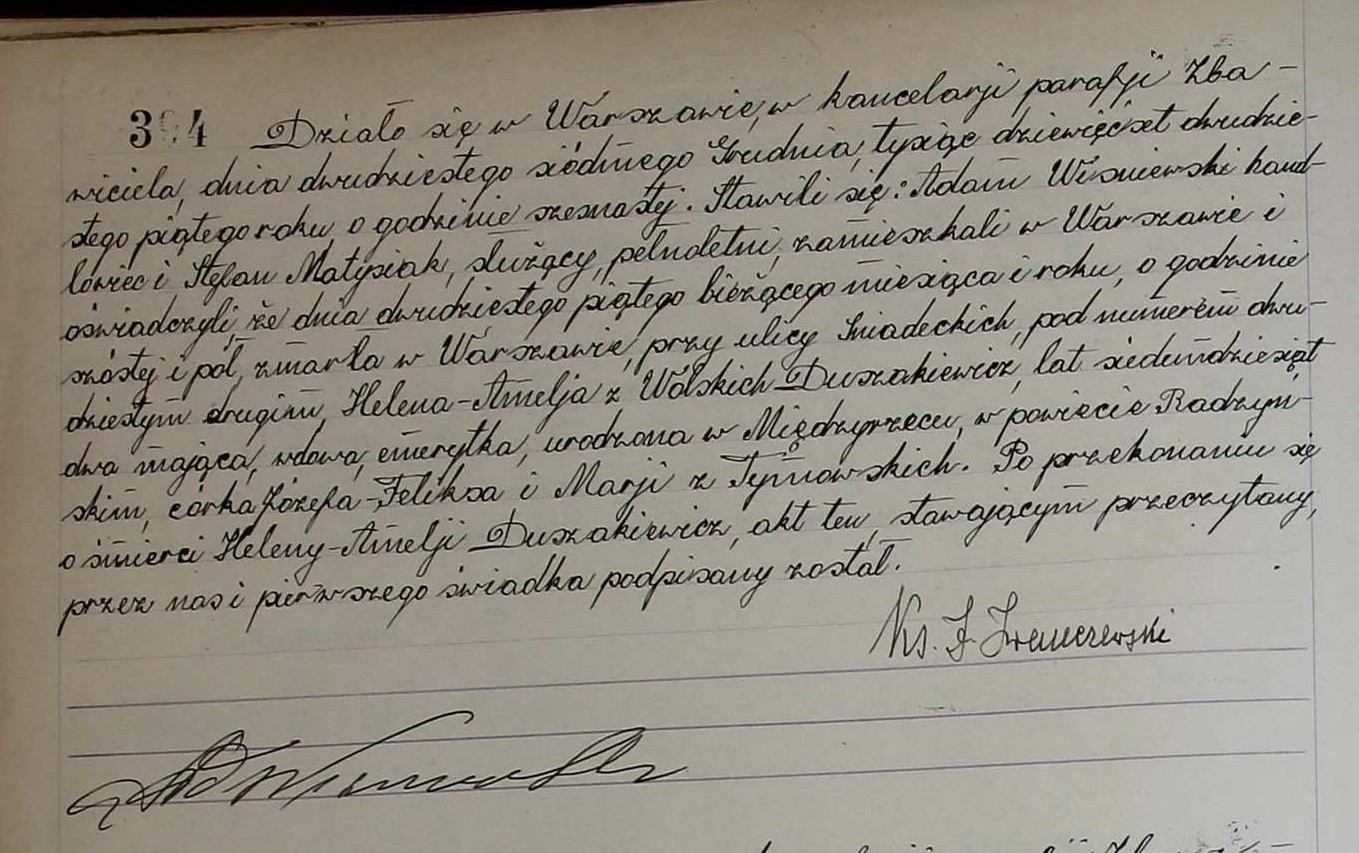 394 Działo się w Warszawie, w kancelarji parafji Zba-
wiciela, dnia dwudziestego siódmego Grudnia, tysiąc dziewięćset dwudzie-
stego piątego roku, o godzinie szesnastej. Stawili się: Adam Wiśniewski hand-
lowiec i Stefan Matysiak, służący, pełnoletni, zamieszkali w Warszawie i
oświadczyli, że dnia dwudziestego piątego bieżącego miesiąca i roku, o godzinie
szóstej i pół, zmarła w Warszawie, przy ulicy Śniadeckich, pod numerem dwu-
dziestym drugim, Helena-Amelja z Wolskich Duszakiewicz, lat siedmdziesiąt
dwa mająca, wdowa, emerytka, urodzona w Międzyrzecu, w powiecie Radzyń-
skim, córka Józefa-Feliksa i Marji z Tymowskich. Po przekonaniu się
o śmierci Heleny-Amelji Duszakiewicz, akt ten, stawającym przeczytany,
przez nas i pierwszego świadka podpisany został.
Ks. F.